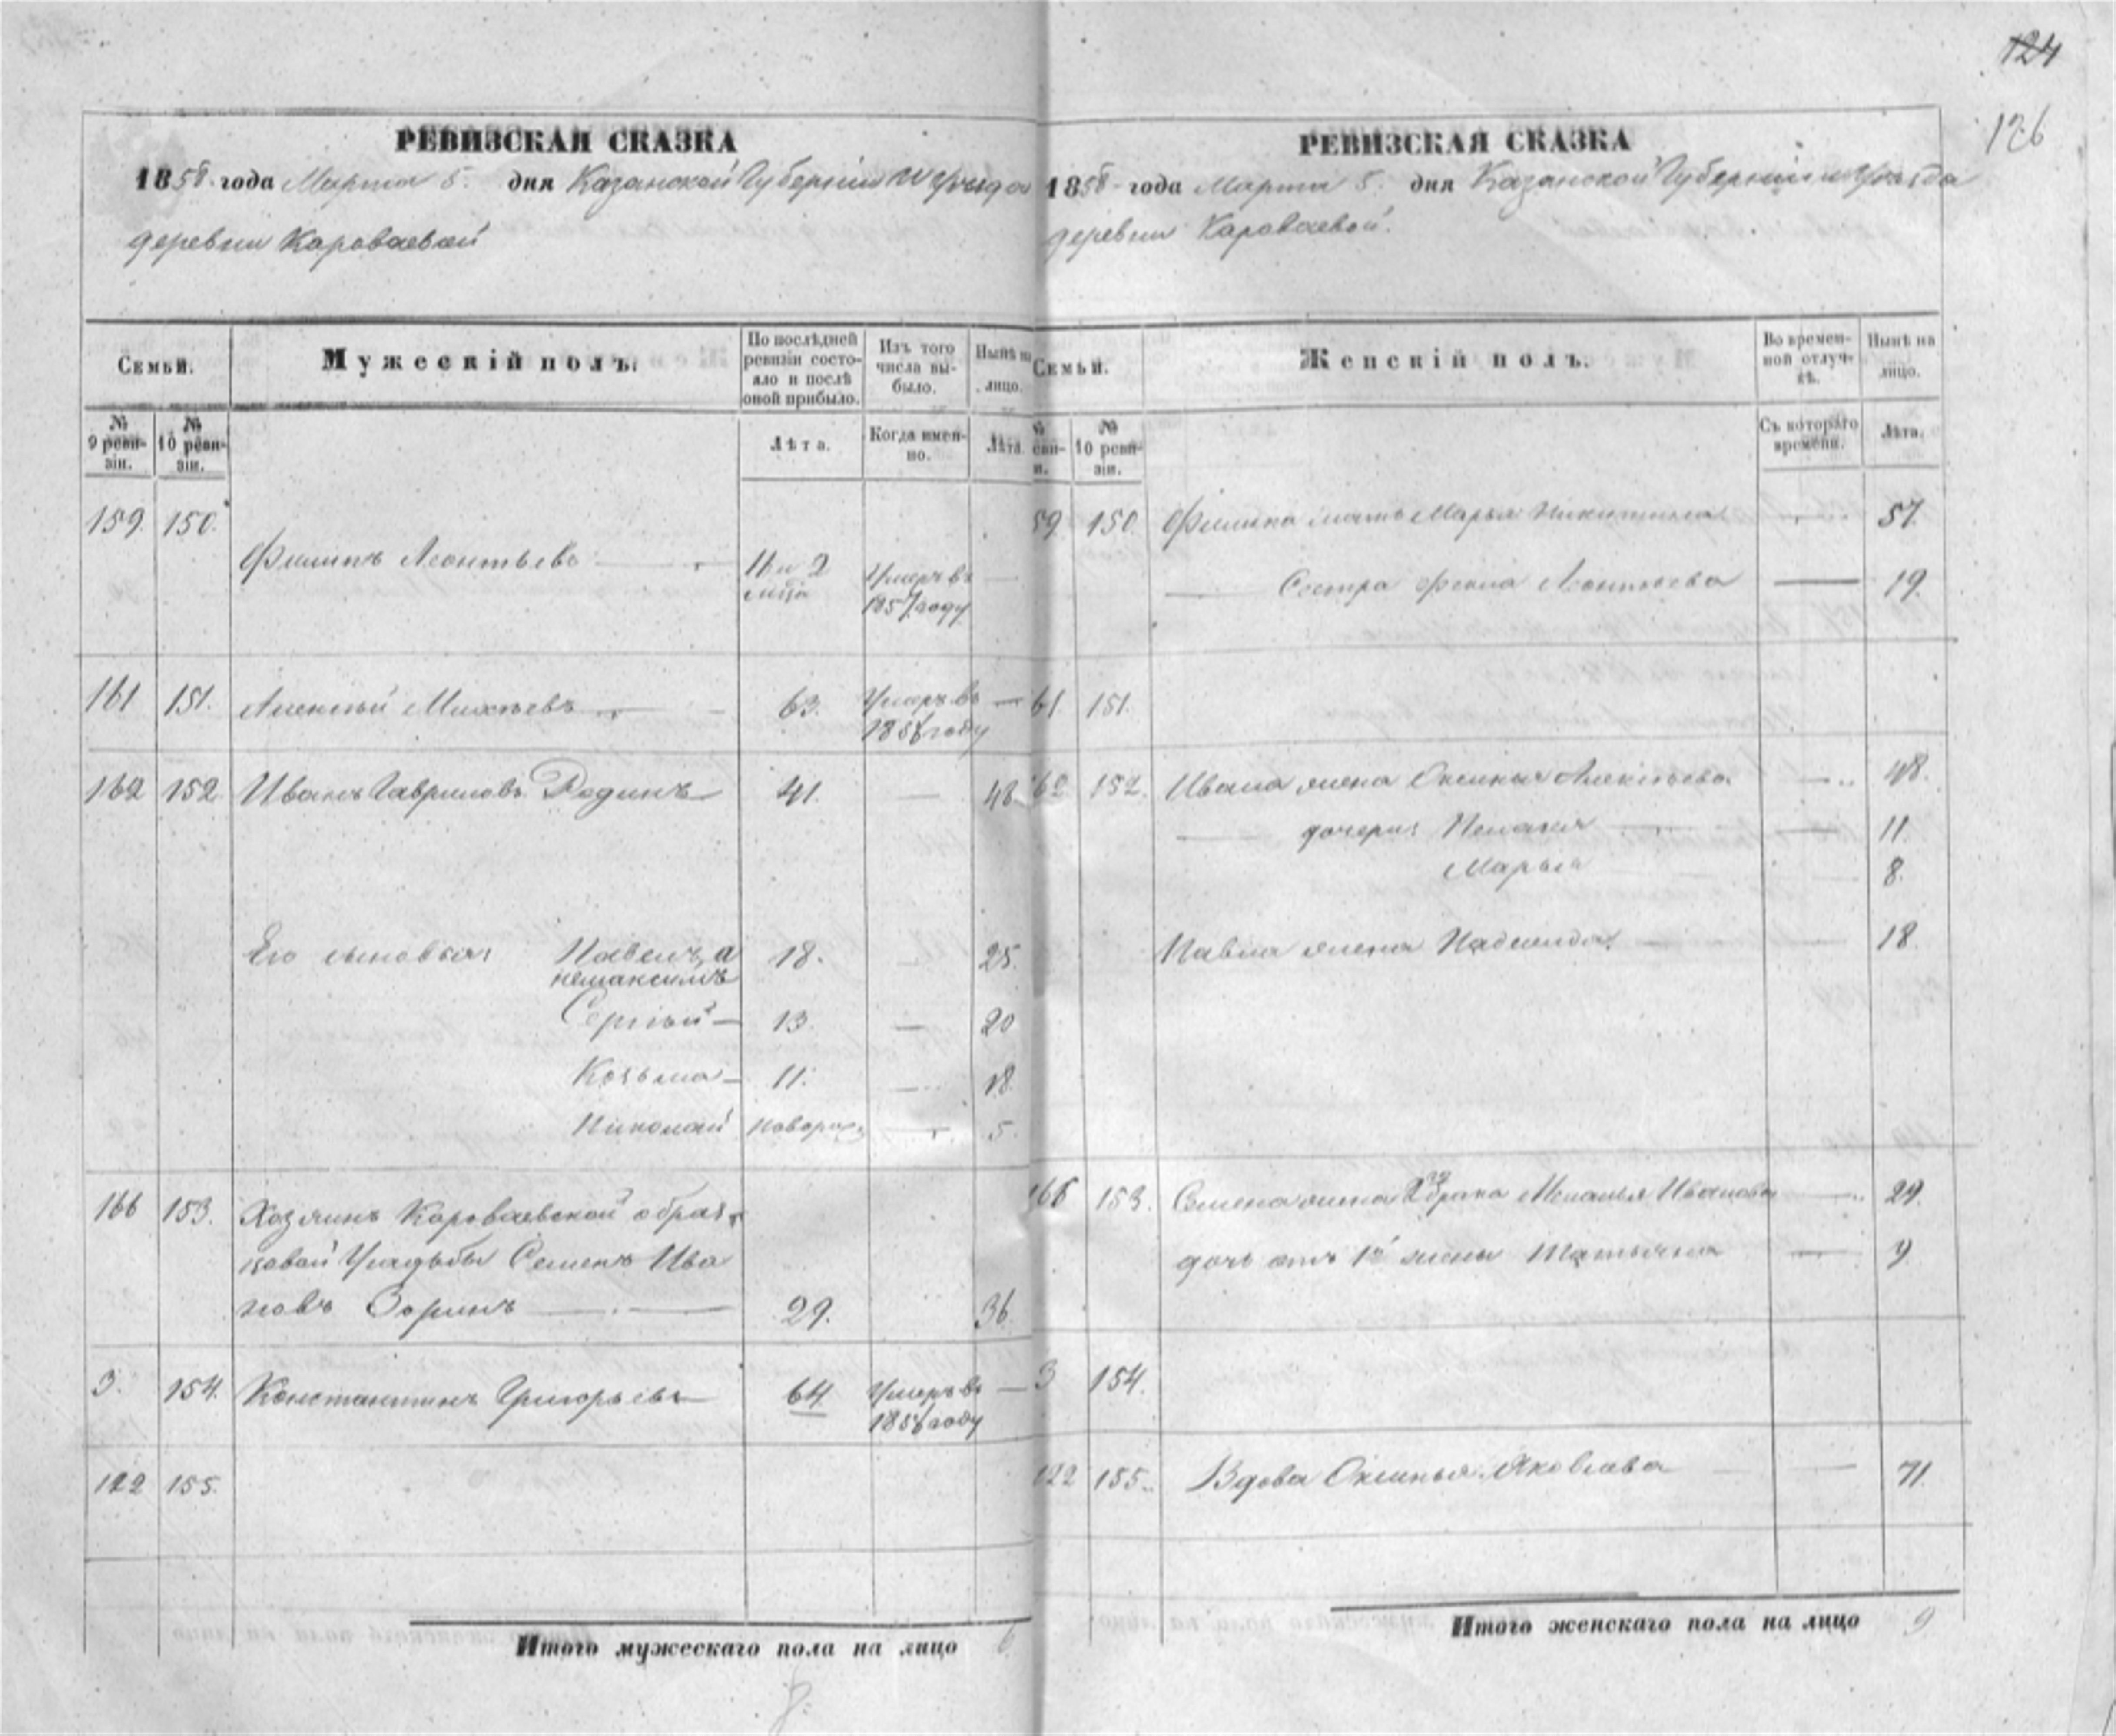 124
126
РЕВИЗСКАЯ СКАЗКА
1858 года Марта 5. дня Казанской Губернии и Уѣзда
деревни Караваевой
Семьи.
Мужескій полъ.
По послѣдней ревизіи состояло и послѣ оной прибыло.
Изъ того числа выбыло.
Нынѣ на лицо.
№ 9 ревизіи.
№ 10 ревизіи.
Лѣта.
Когда именно.
Лѣта.
159. 150.
Филипъ Леонтьевъ 11 и 2 Умеръ въ —
мѣся 1857 году
161 151. Алексѣй Михѣевъ 63. Умеръ въ —
185 году
162 152. Иванъ Гавриловъ Родинъ 41. — 48
Его сыновья: Павелъ, а 18. — 25.
не Максимъ
Сергѣй — 13. — 20
Козьма — 11. — 18.
Николай новорож — 5.
166 153. Хозяинъ Караваевской образ
цовой Усадьбы Семенъ Ива
новъ Зоринъ — 29. 36.
3. 154. Константинъ Григорьевъ 64 Умеръ въ —
185 году
122 155.
Итого мужескаго пола на лицо 6
8.
РЕВИЗСКАЯ СКАЗКА
1858 года Марта 5. дня Казанской Губерніи и Уѣзда
деревни Караваевой.
Семьи.
Женскій полъ.
Во временной отлучкѣ.
Нынѣ на лицо.
№
№ 10 ревизіи.
Съ котораго времени.
Лѣта.
59 150 Филипа мать Марья Никитина — 57.
— Сестра Фекла Леонтьева — 19.
61. 151.
62 152. Ивана жена Оксинья Алексѣева — 48.
— дочери: Пелагея — 11.
Марья 8.
Павла жена Надежда. — 18.
166 153. Семена жена 2го брака Меланья Иванова — 29.
дочь отъ 1й жены Татьяна — 9
3 154.
122 155. Вдова Оксинья Яковлева — 71.
Итого женскаго пола на лицо 9